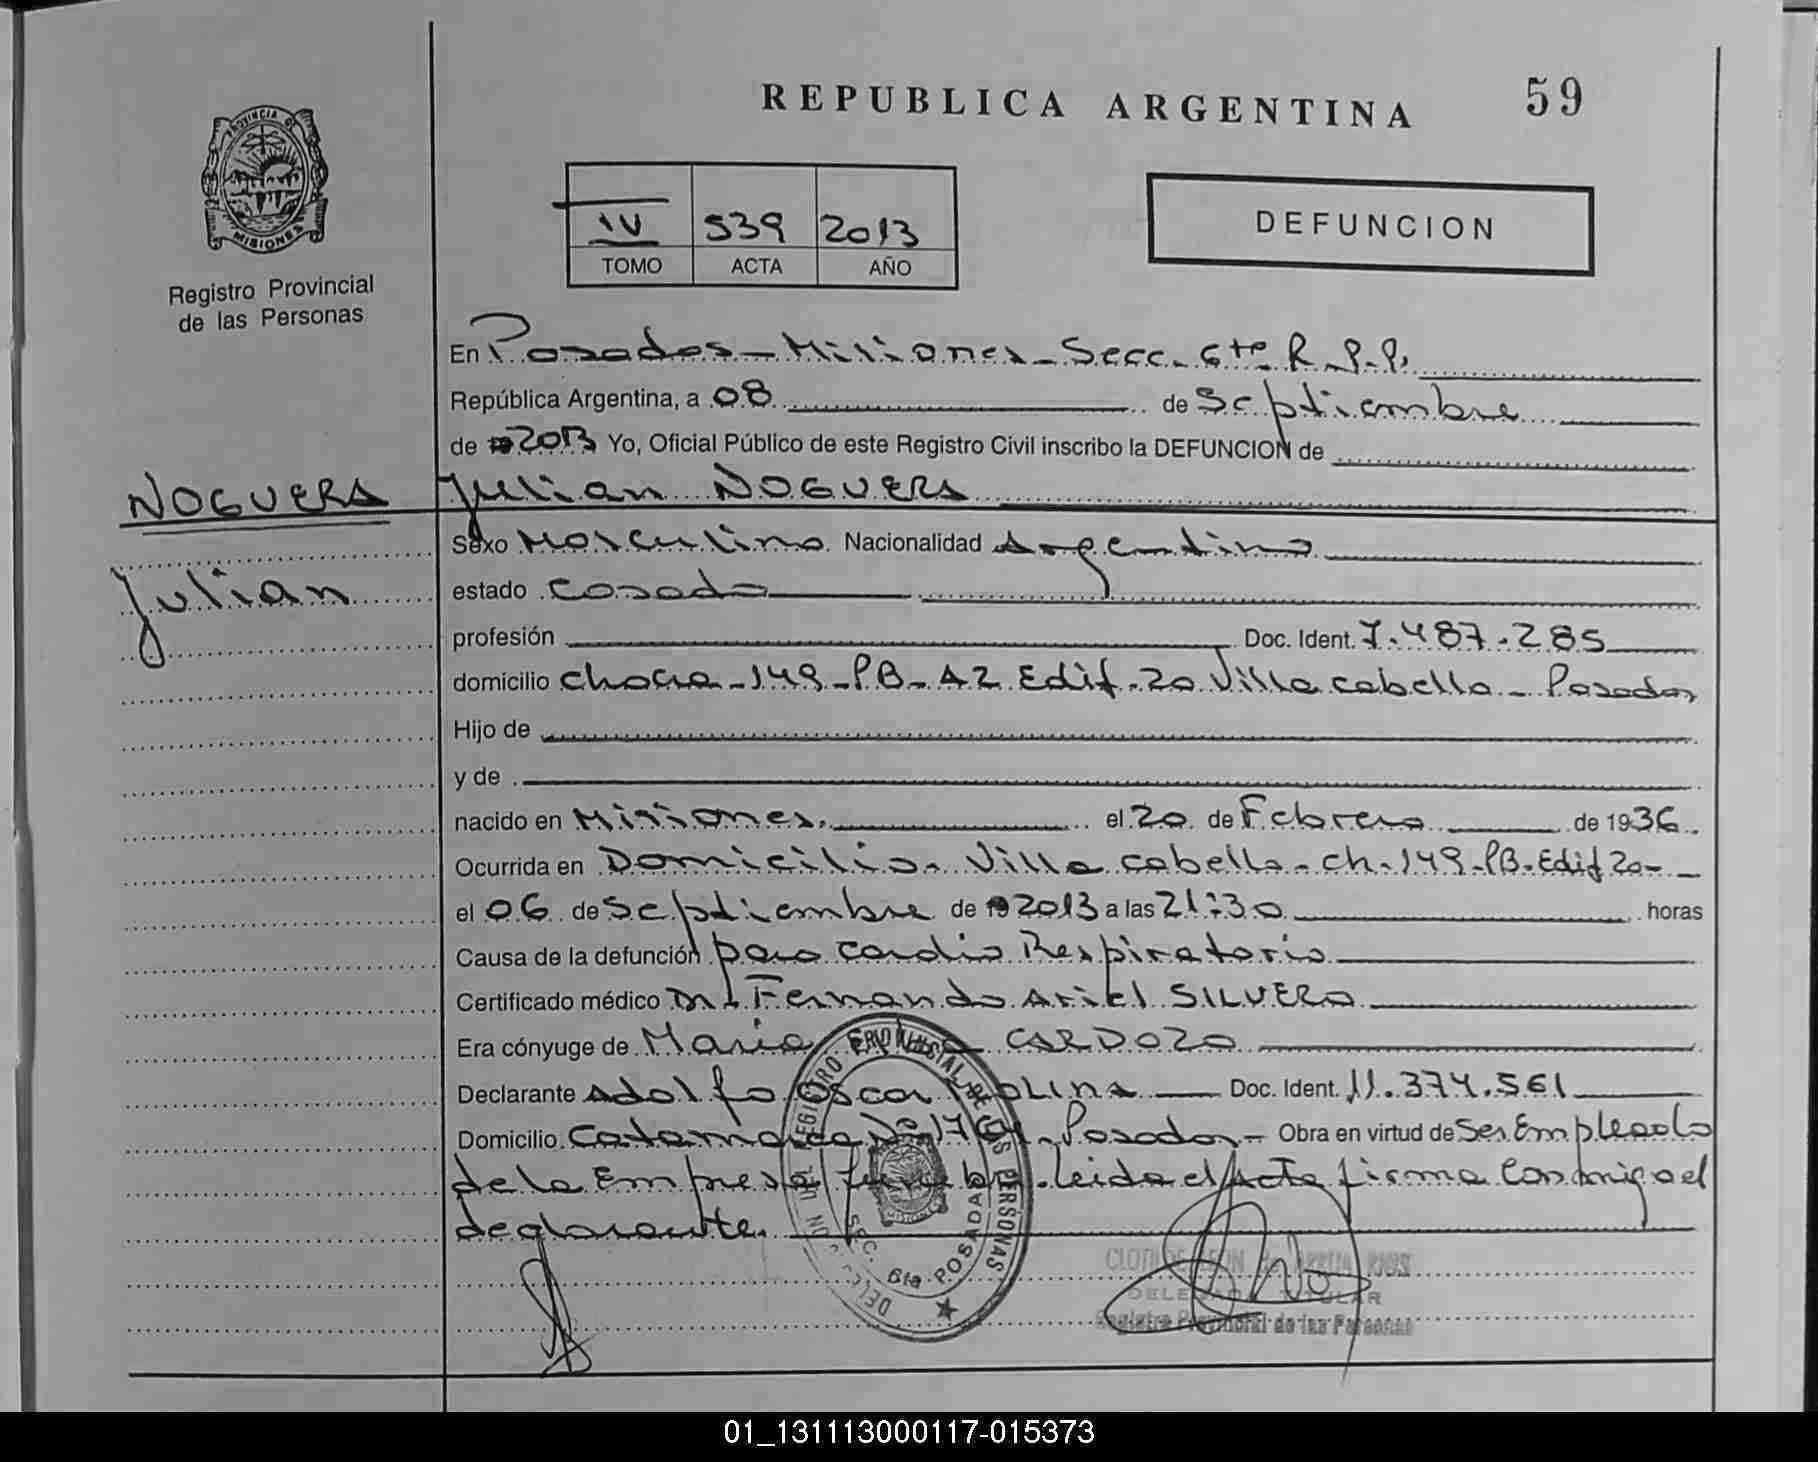 REPUBLICA ARGENTINA
59
PROVINCIA DE
MISIONES
Registro Provincial
de las Personas
IV 539 2013
TOMO ACTA AÑO
DEFUNCION
En Posadas - Misiones - Secc. 6ta R.P.P.
República Argentina, a 08 de Septiembre
de 2013 Yo, Oficial Público de este Registro Civil inscribo la DEFUNCION de
NOGUERA
Julian NOGUERA
Julian
Sexo Masculino Nacionalidad Argentino
estado casado
profesión Doc. Ident. 7.487.285
domicilio chacra - 149 - PB - A2 Edif. 20 Villa cabello - Posadas
Hijo de
y de
nacido en Misiones, el 20 de Febrero de 1936
Ocurrida en Domicilio - Villa cabello - ch - 149 - PB - Edif 20 -
el 06 de Septiembre de 2013 a las 21:30 horas
Causa de la defunción paro cardio Respiratorio
Certificado médico Dr. Fernando Ariel SILVERO
Era cónyuge de Maria CARDOZO
Declarante Adolfo Oscar MOLINA Doc. Ident. 11.374.561
Domicilio Catamarca Nº - Posadas - Obra en virtud de Ser Empleado
de la Empresa funebre. leida el Acta firma Conmigo el
declarante.
DELEGACION DEL REGISTRO PROVINCIAL DE LAS PERSONAS
SEC. 6ta POSADAS
CLOTILDE LEON de
DELEGADA TITULAR
Registro Provincial de las Personas
01_131113000117-015373